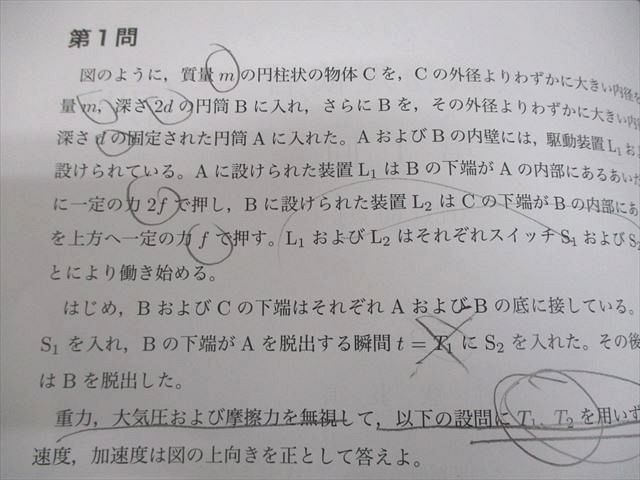 第1問
図のように,質量 m の円柱状の物体 C を,C の外径よりわずかに大きい内径を
量 m,深さ 2d の円筒 B に入れ,さらに B を,その外径よりわずかに大きい内
深さ d の固定された円筒 A に入れた。A および B の内壁には,駆動装置 L₁ およ
設けられている。A に設けられた装置 L₁ は B の下端が A の内部にあるあいだ
に一定の力 2f で押し,B に設けられた装置 L₂ は C の下端が B の内部にあ
を上方へ一定の力 f で押す。L₁ および L₂ はそれぞれスイッチ S₁ および S₂
とにより働き始める。
はじめ,B および C の下端はそれぞれ A および B の底に接している。
S₁ を入れ,B の下端が A を脱出する瞬間 t = T₁ に S₂ を入れた。その後
は B を脱出した。
重力,大気圧および摩擦力を無視して,以下の設問に T₁、T₂ を用いず
速度,加速度は図の上向きを正として答えよ。